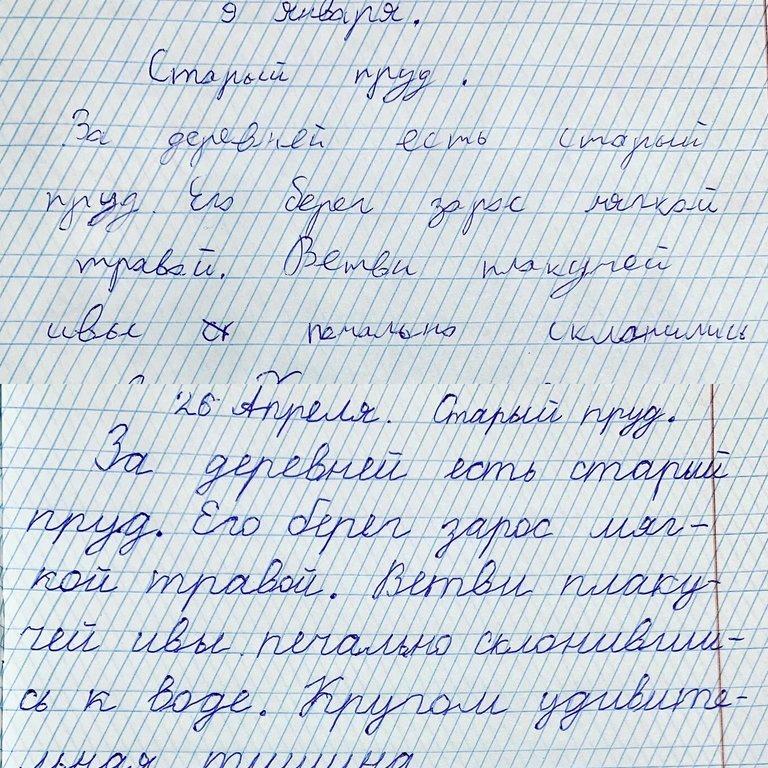 9 января.
Старый пруд.
За деревней есть старый
пруд. Его берег зарос мягкой
травой. Ветви плакучей
ивы печально склонились
26 Апреля. Старый пруд.
За деревней есть старый
пруд. Его берег зарос мяг-
кой травой. Ветви плаку-
чей ивы печально склонивши-
сь к воде. Кругом удивите-
льная тишина